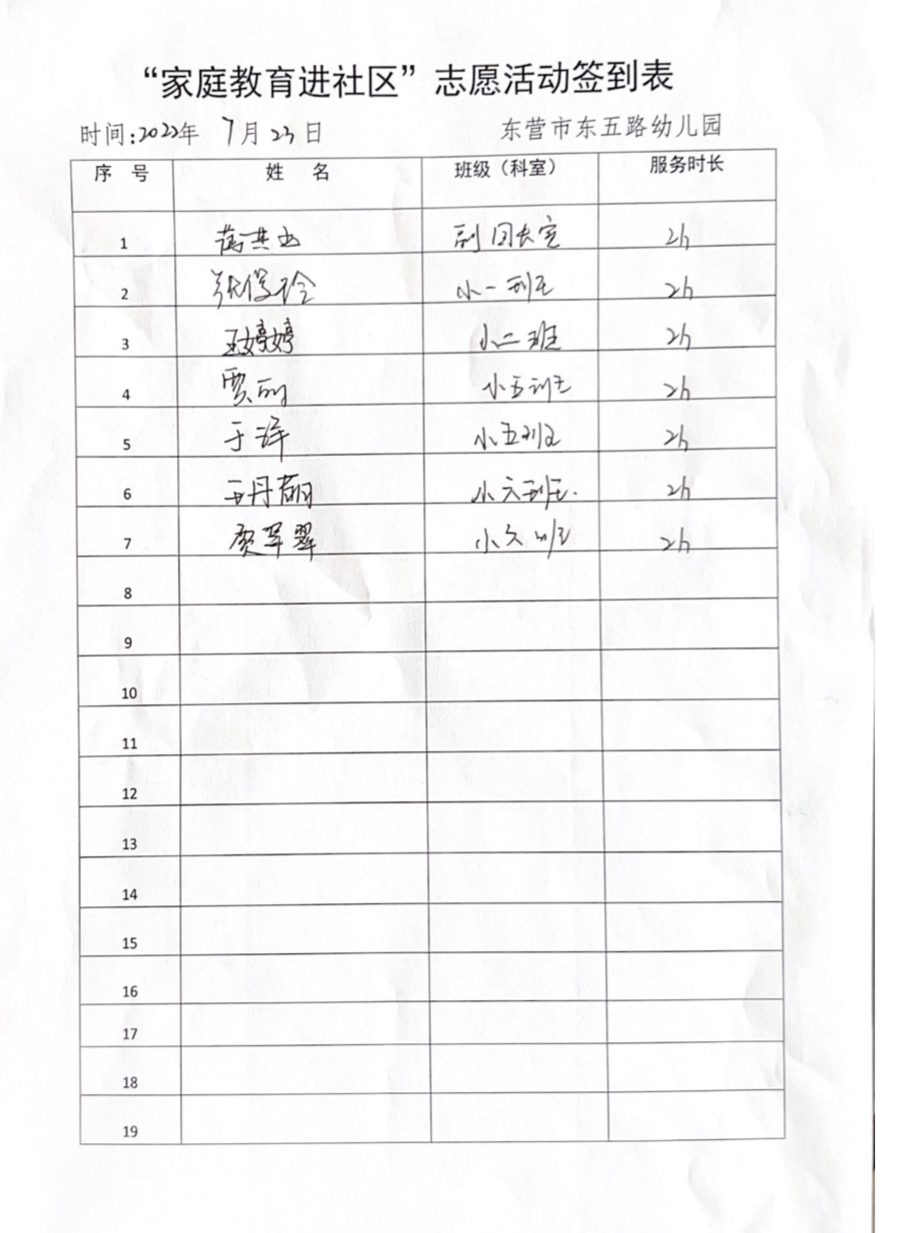 “家庭教育进社区”志愿活动签到表
时间:2022年 7月23日 东营市东五路幼儿园
序 号 姓 名 班级（科室） 服务时长
1 副园长室 2h
2 张俊玲 小一班 2h
3 王婷婷 小二班 2h
4 贾丽 小五班 2h
5 于泽 小五班 2h
6 王丹丽 小六班. 2h
7 贾翠翠 小六班 2h
8
9
10
11
12
13
14
15
16
17
18
19